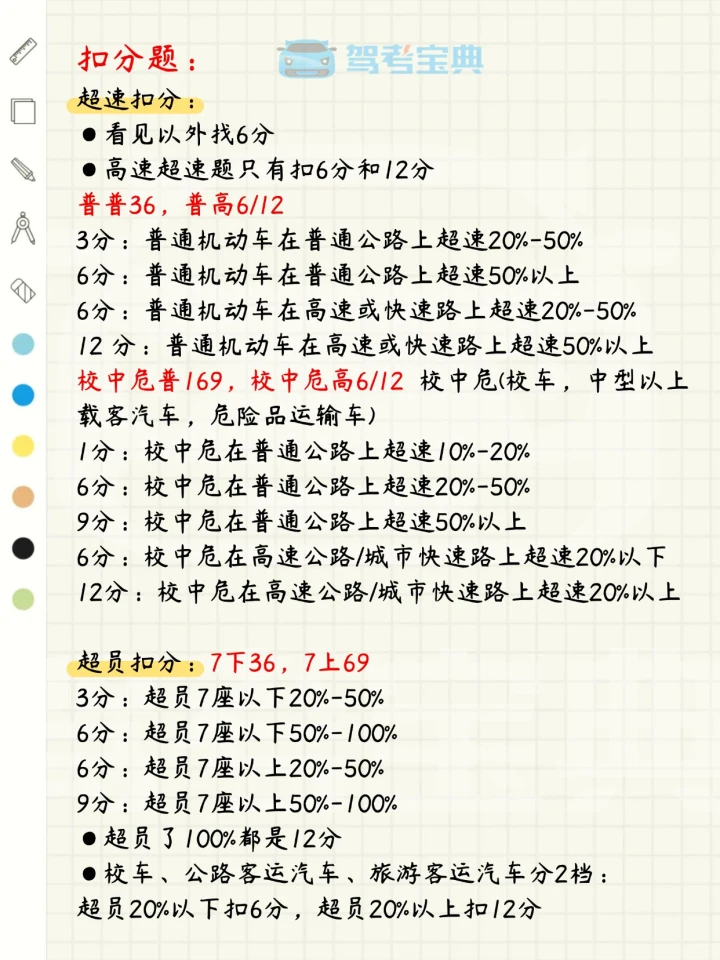 扣分题：
驾考宝典
超速扣分：
●看见以外找6分
●高速超速题只有扣6分和12分
普普36，普高6/12
3分：普通机动车在普通公路上超速20%-50%
6分：普通机动车在普通公路上超速50%以上
6分：普通机动车在高速或快速路上超速20%-50%
12 分：普通机动车在高速或快速路上超速50%以上
校中危普169，校中危高6/12 校中危(校车，中型以上
载客汽车，危险品运输车)
1分：校中危在普通公路上超速10%-20%
6分：校中危在普通公路上超速20%-50%
9分：校中危在普通公路上超速50%以上
6分：校中危在高速公路/城市快速路上超速20%以下
12分：校中危在高速公路/城市快速路上超速20%以上
超员扣分：7下36，7上69
3分：超员7座以下20%-50%
6分：超员7座以下50%-100%
6分：超员7座以上20%-50%
9分：超员7座以上50%-100%
●超员了100%都是12分
●校车、公路客运汽车、旅游客运汽车分2档：
超员20%以下扣6分，超员20%以上扣12分